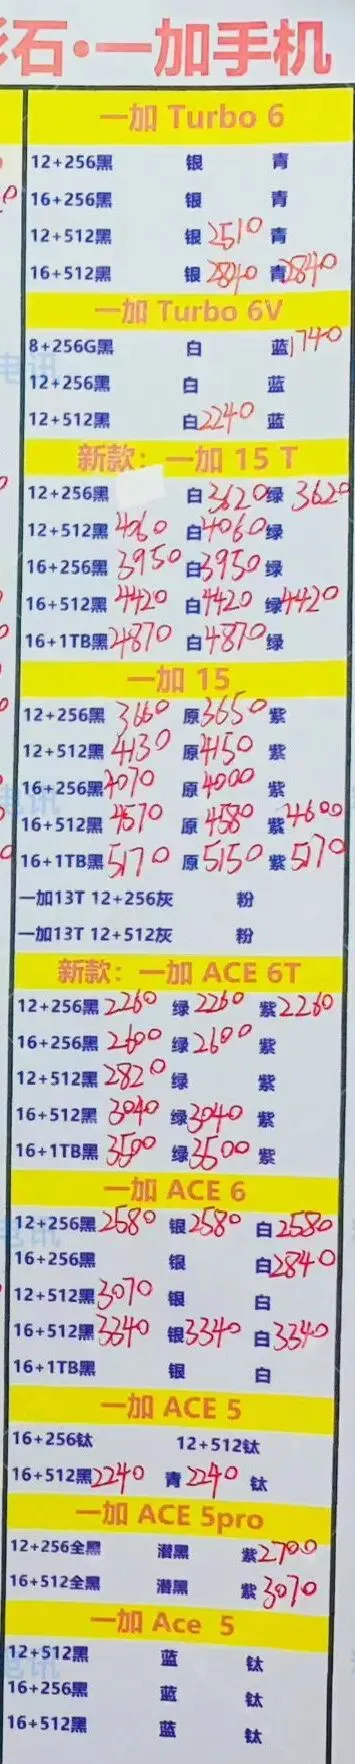 石·一加手机
一加 Turbo 6
12+256黑 银 青
16+256黑 银 青
12+512黑 银 2510 青
16+512黑 银 2840 青 2840
一加 Turbo 6V
8+256G黑 白 蓝 1740
12+256黑 白 蓝
12+512黑 白 2240 蓝
新款：一加 15 T
12+256黑 白 3620 绿 3620
12+512黑 4060 白 4060 绿
16+256黑 3950 白 3950 绿
16+512黑 4420 白 4420 绿 4420
16+1TB黑 4870 白 4870 绿
一加 15
12+256黑 3660 原 3650 紫
12+512黑 4130 原 4150 紫
16+256黑 4070 原 4000 紫
16+512黑 4570 原 4580 紫 4600
16+1TB黑 5170 原 5150 紫 5170
一加13T 12+256灰 粉
一加13T 12+512灰 粉
新款：一加 ACE 6T
12+256黑 2260 绿 2260 紫 2260
16+256黑 2600 绿 2600 紫
12+512黑 2820 绿 紫
16+512黑 3040 绿 3040 紫
16+1TB黑 3500 绿 3500 紫
一加 ACE 6
12+256黑 2580 银 2580 白 2580
16+256黑 银 白 2840
12+512黑 3070 银 白
16+512黑 3340 银 3340 白 3340
16+1TB黑 银 白
一加 ACE 5
16+256钛 12+512钛
16+512黑 2240 青 2240 钛
一加 ACE 5pro
12+256全黑 潜黑 紫 2700
16+512全黑 潜黑 紫 3070
一加 Ace 5
12+512黑 蓝 钛
16+256黑 蓝 钛
16+512黑 蓝 钛